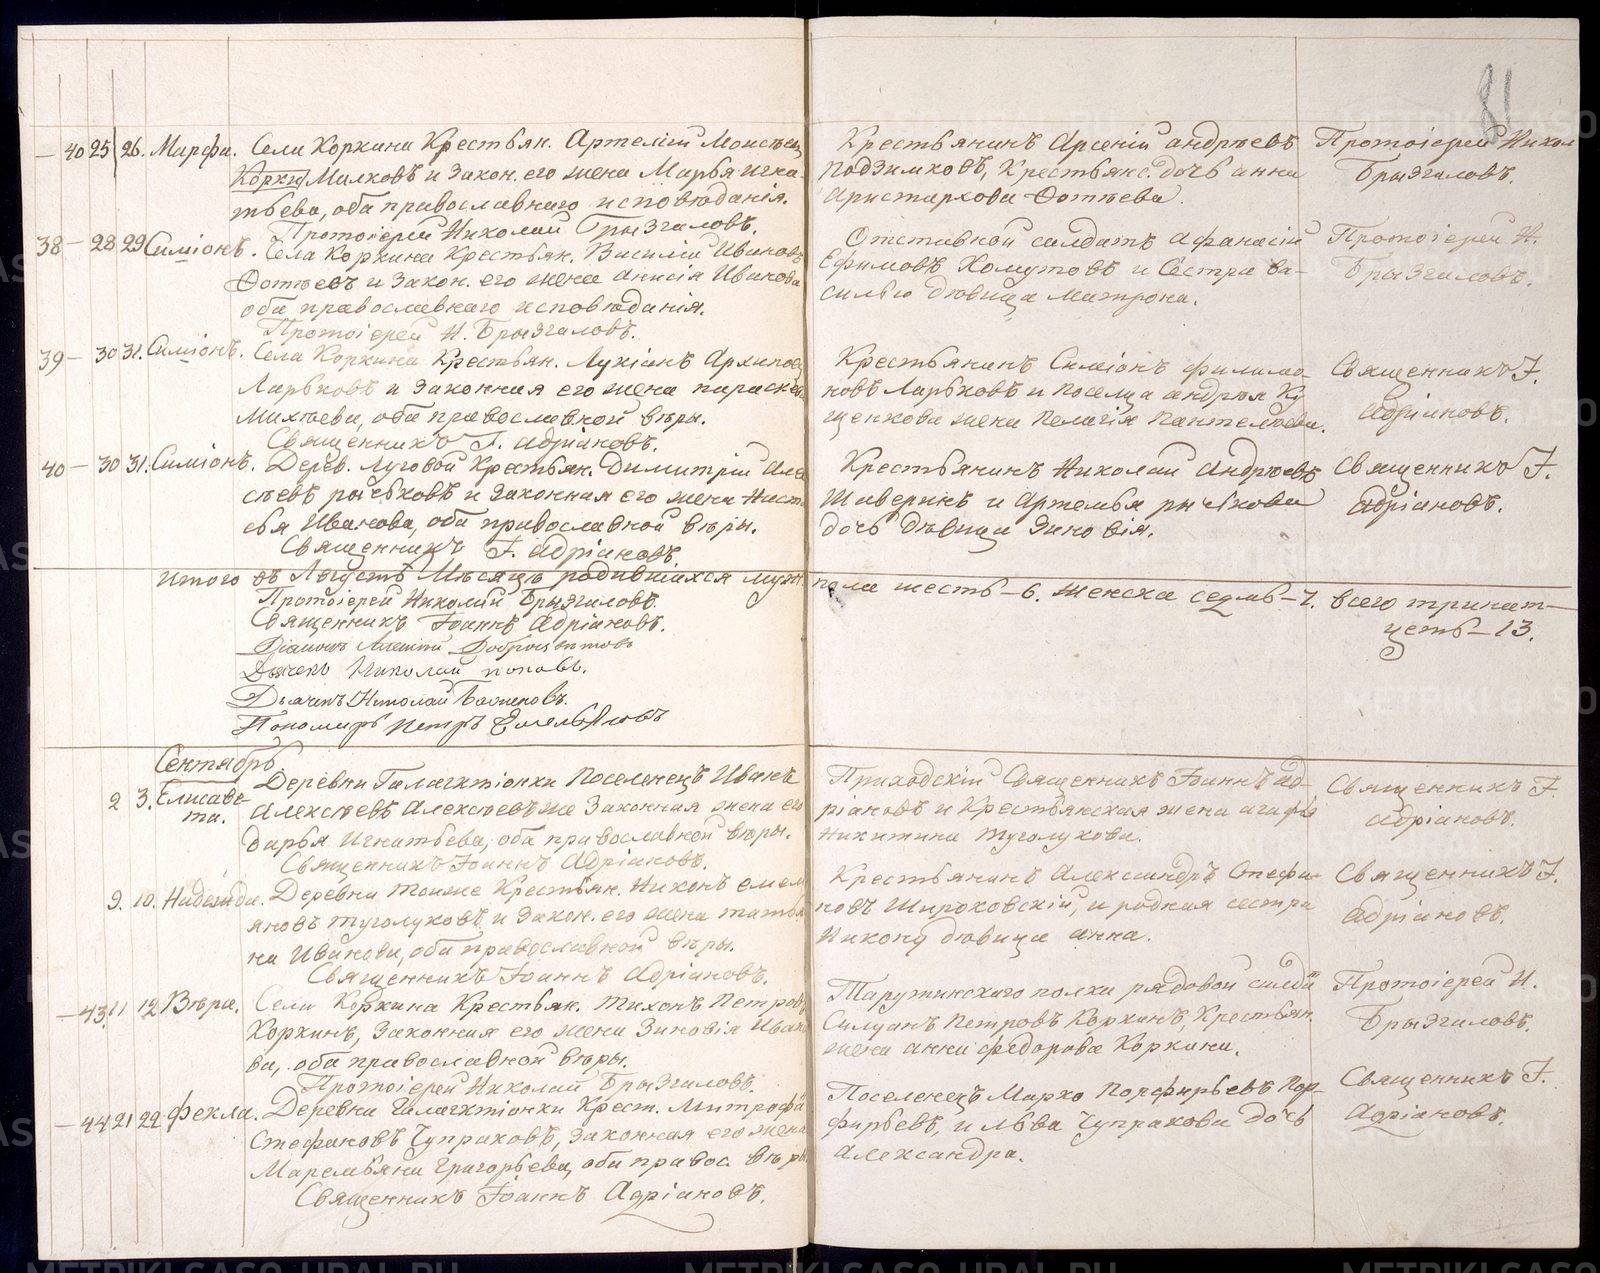 81
— 40 25 26. Марфа. Села Коркина Крестьян. Артемій Моисѣев
Малковъ и Закон. его жена Марья Игна-
тьева, оба православнаго исповѣданія.
Протоіерей Николай Брызгаловъ.
Крестьянинъ Арсеній Андрѣевъ
Подзимковъ, Крестьянс. дочь Анна
Аристархова Фотѣева.
Протоіерей Никол
Брызгаловъ.
38 — 28 29 Симіонъ. Села Коркина Крестьян. Василій Ивановъ
Фотѣевъ и Закон. его жена Анисія Иванова
оба православнаго исповѣданія.
Протоіерей Н. Брызгаловъ.
Отставной солдатъ Афанасій
Ефимовъ Хомутовъ и Сестра Ва-
силью дѣвица Матрона.
Протоіерей Н.
Брызгаловъ.
39 — 30 31. Симіонъ. Села Коркина Крестьян. Лукіанъ Архипов
Ларьковъ и Законная его жена Параскев
Михѣева, оба православной вѣры.
Священникъ І. Адріановъ.
Крестьянинъ Симіонъ Филимо-
новъ Ларьковъ и Поселца Андрея Ку
щенкова жена Пелагія Пантелѣева.
Священникъ І.
Адріановъ.
40 — 30 31. Симіонъ. Дерев. Луговой Крестьян. Димитрій Але
сѣевъ Рычковъ и Законная его жена Наст
сья Иванова, оба православной вѣры.
Священникъ І. Адріановъ.
Крестьянинъ Николай Андрѣевъ
Шаверинъ и Артемья Рычкова
дочь дѣвица Зиновія.
Священникъ І.
Адріановъ.
Итого въ Августѣ Мѣсяцѣ родившихся муж. пола шесть — 6. женска седмь — 7. всего тринат-
цеть — 13.
Протоіерей Николай Брызгаловъ.
Священникъ Іоаннъ Адріановъ.
Діаконъ Алексій
Дьячекъ Николай Поповъ.
Дьячекъ Николай Баженовъ.
Пономарь Петръ Емельяновъ
Сентябрь.
2 3. Елисаве-
та.
Деревни Галагктіонки Поселенецъ Иванъ
Алексѣевъ Алексѣевъ же Законная жена его
Дарья Игнатьева, оба православной вѣры.
Священникъ Іоаннъ Адріановъ.
Приходскій Священникъ Іоаннъ Ад-
ріановъ и Крестьянская жена Агафья
Никитина Туголукова.
Священникъ І.
Адріановъ.
9. 10. Надежда. Деревни тоиже Крестьян. Никонъ Емель
яновъ Туголуковъ и Закон. его жена Татья
на Иванова, оба православной вѣры.
Священникъ Іоаннъ Адріановъ.
Крестьянинъ Александръ Стефа-
новъ Широковскій, и родная сестра
Никону дѣвица Анна.
Священникъ І.
Адріановъ.
— 43 11 12 Вѣра. Села Коркина Крестьян. Тихонъ Петров
Коркинъ, Законная его жена Зиновія Ивано
ва, оба православной вѣры.
Протоіерей Николай Брызгаловъ.
Тарутинскаго полка рядовой солда
Силуанъ Петровъ Коркинъ, Крестьян.
жена Анна Федорова Коркина.
Протоіерей Н.
Брызгаловъ.
— 44 21 22 Фекла. Деревни Галагктіонки Крест. Митрофа
Стефановъ Чупраковъ, Законная его жена
Маремьяна Григорьева, оба правос. вѣры
Священникъ Іоаннъ Адріановъ.
Поселенецъ Марко Порфирьевъ Пор-
фирьевъ, и Льва Чупракова дочь
Александра.
Священникъ І.
Адріановъ.
METRIKI.GASO-URAL.RU